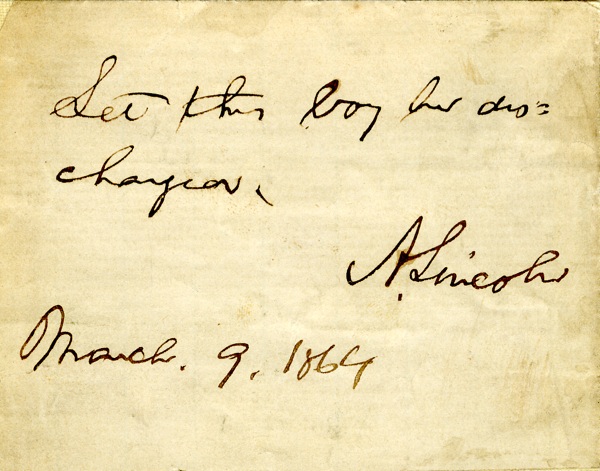 Let this boy be dis=
charged.
A. Lincoln
March. 9. 1864